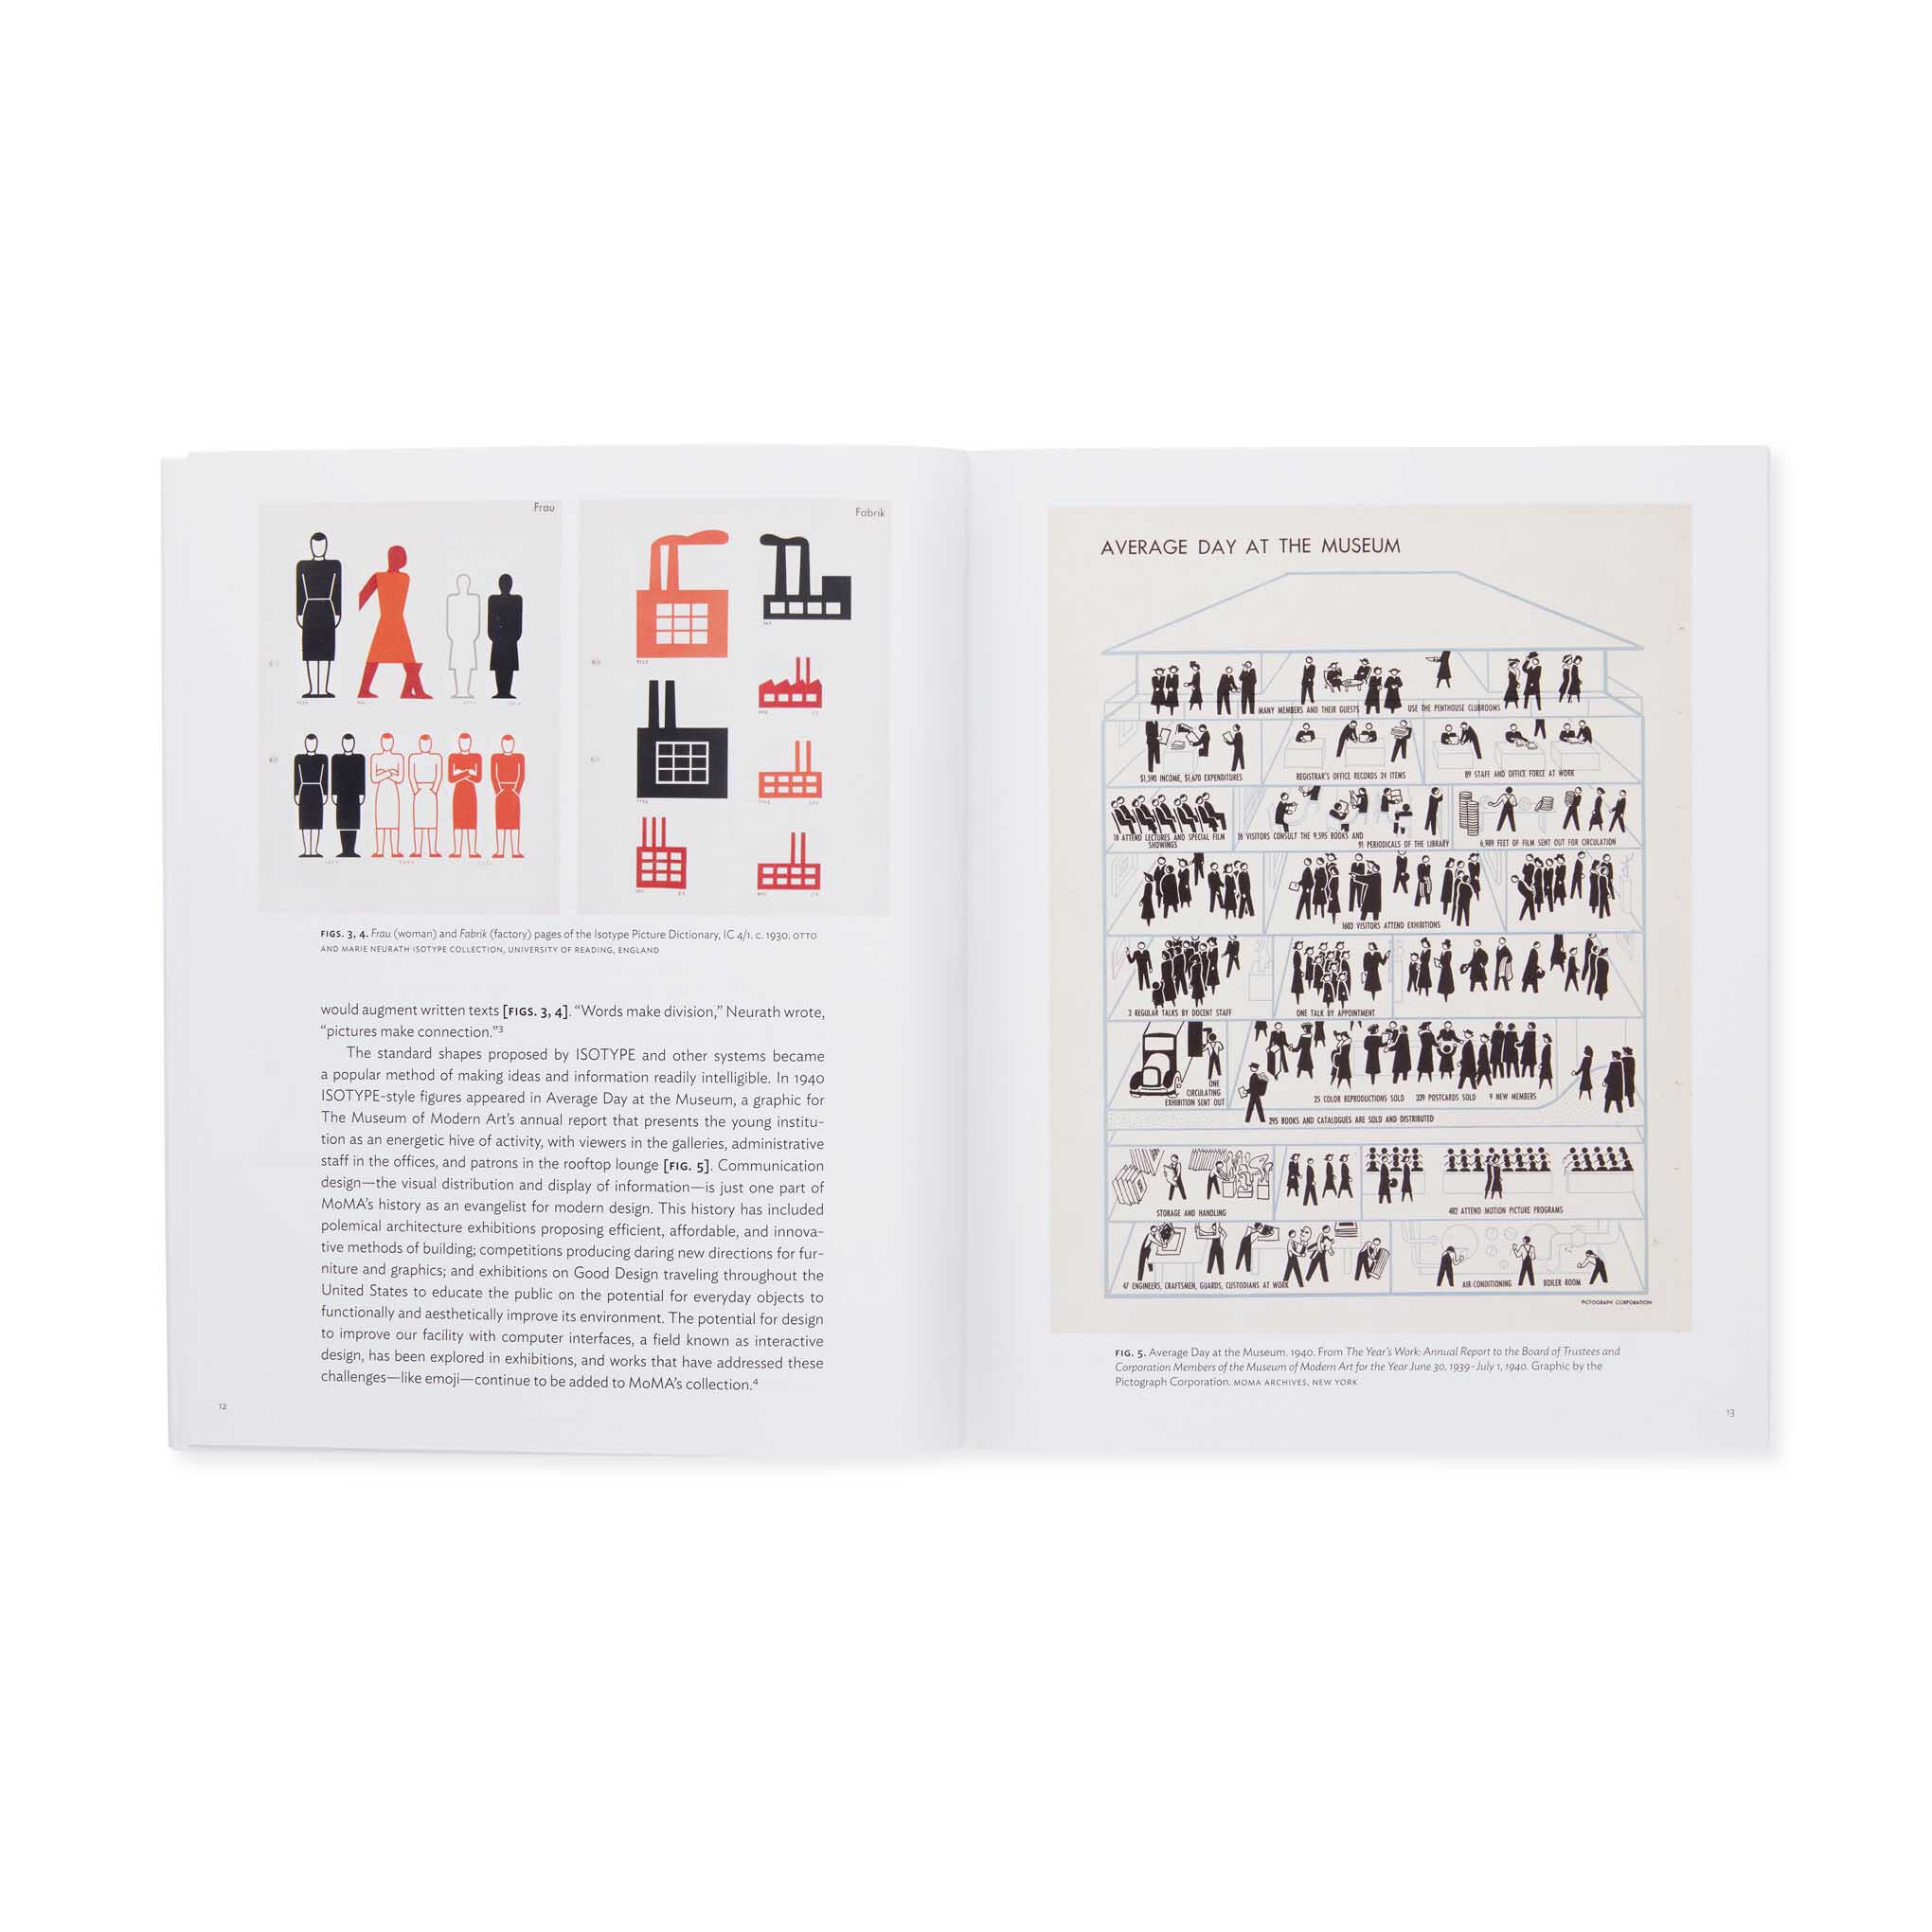 Frau
Fabrik
FIGS. 3, 4. Frau (woman) and Fabrik (factory) pages of the Isotype Picture Dictionary, IC 4/1. c. 1930. OTTO
AND MARIE NEURATH ISOTYPE COLLECTION, UNIVERSITY OF READING, ENGLAND
would augment written texts [FIGS. 3, 4]. “Words make division,” Neurath wrote,
“pictures make connection.”3
The standard shapes proposed by ISOTYPE and other systems became
a popular method of making ideas and information readily intelligible. In 1940
ISOTYPE-style figures appeared in Average Day at the Museum, a graphic for
The Museum of Modern Art’s annual report that presents the young institu-
tion as an energetic hive of activity, with viewers in the galleries, administrative
staff in the offices, and patrons in the rooftop lounge [FIG. 5]. Communication
design—the visual distribution and display of information—is just one part of
MoMA’s history as an evangelist for modern design. This history has included
polemical architecture exhibitions proposing efficient, affordable, and innova-
tive methods of building; competitions producing daring new directions for fur-
niture and graphics; and exhibitions on Good Design traveling throughout the
United States to educate the public on the potential for everyday objects to
functionally and aesthetically improve its environment. The potential for design
to improve our facility with computer interfaces, a field known as interactive
design, has been explored in exhibitions, and works that have addressed these
challenges—like emoji—continue to be added to MoMA’s collection.4
12
AVERAGE DAY AT THE MUSEUM
MANY MEMBERS AND THEIR GUESTS USE THE PENTHOUSE CLUBROOMS
$1,590 INCOME, $1,670 EXPENDITURES
REGISTRAR'S OFFICE RECORDS 24 ITEMS
89 STAFF AND OFFICE FORCE AT WORK
18 ATTEND LECTURES AND SPECIAL FILM
SHOWINGS
16 VISITORS CONSULT THE 9,595 BOOKS AND
91 PERIODICALS OF THE LIBRARY
6,989 FEET OF FILM SENT OUT FOR CIRCULATION
1603 VISITORS ATTEND EXHIBITIONS
3 REGULAR TALKS BY DOCENT STAFF
ONE TALK BY APPOINTMENT
ONE
CIRCULATING
EXHIBITION SENT OUT
25 COLOR REPRODUCTIONS SOLD 339 POSTCARDS SOLD 9 NEW MEMBERS
295 BOOKS AND CATALOGUES ARE SOLD AND DISTRIBUTED
STORAGE AND HANDLING
482 ATTEND MOTION PICTURE PROGRAMS
47 ENGINEERS, CRAFTSMEN, GUARDS, CUSTODIANS AT WORK
AIR-CONDITIONING BOILER ROOM
PICTOGRAPH CORPORATION
FIG. 5. Average Day at the Museum. 1940. From The Year’s Work: Annual Report to the Board of Trustees and
Corporation Members of the Museum of Modern Art for the Year June 30, 1939–July 1, 1940. Graphic by the
Pictograph Corporation. MOMA ARCHIVES, NEW YORK
13